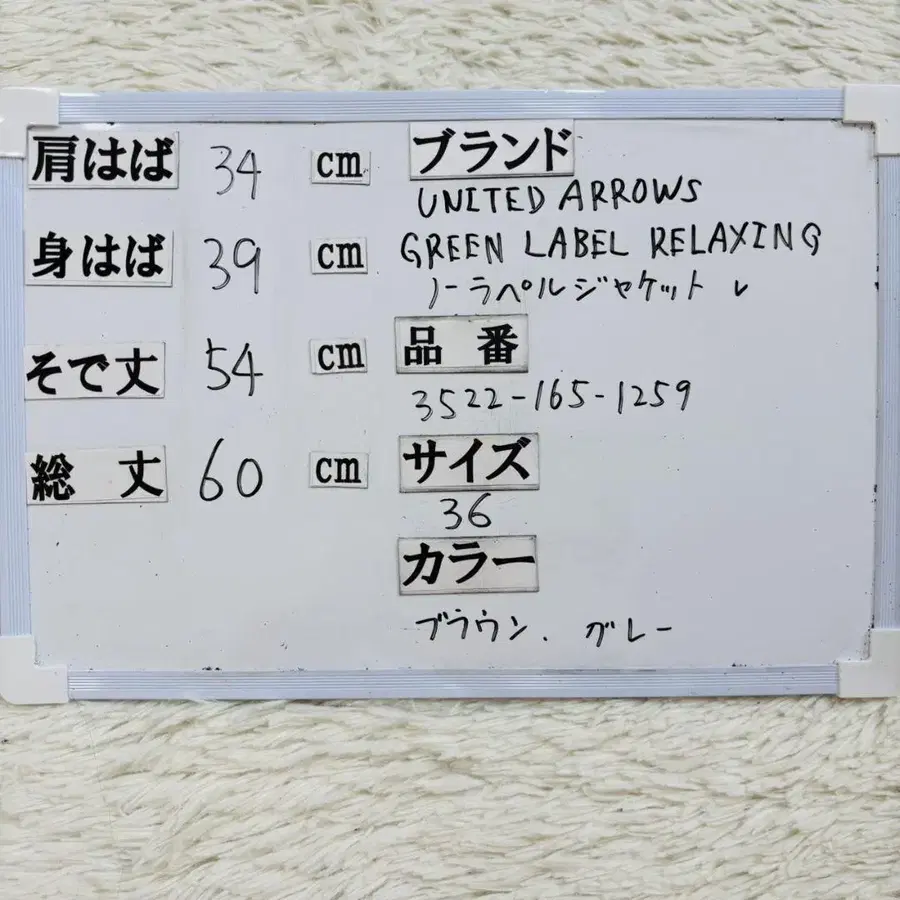 肩はば 34 cm
身はば 39 cm
そで丈 54 cm
総丈 60 cm
ブランド
UNITED ARROWS
GREEN LABEL RELAXING
ノーラペルジャケット レ
品番
3522-165-1259
サイズ
36
カラー
ブラウン、グレー